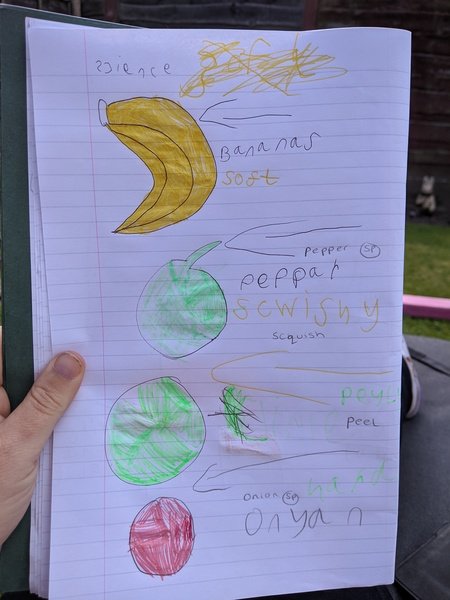 science
Bananas
soft
pepper sp
peppar
scwishy
scquish
peel
onion sp
hard
Onyan